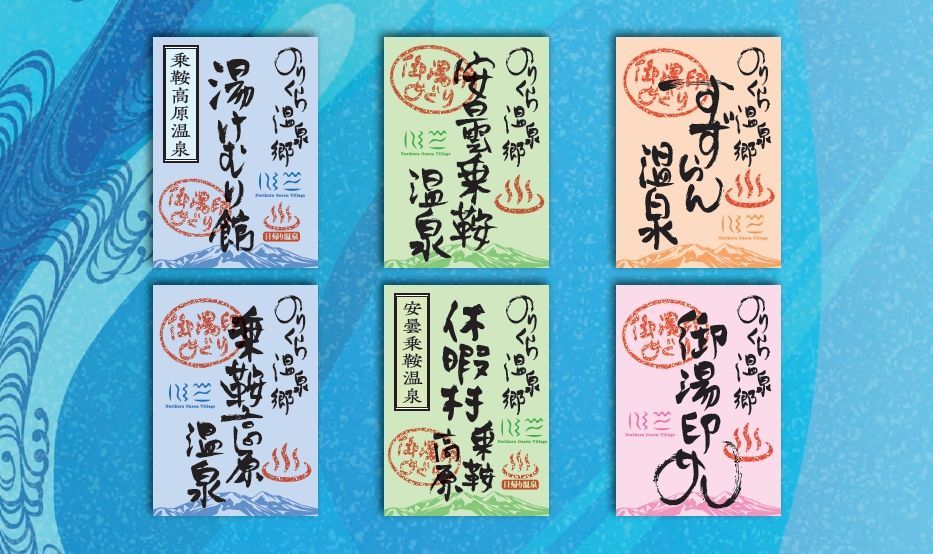 のりくら温泉郷
湯けむり館
乗鞍高原温泉
御湯印
めぐり
Norikura Onsen Village
日帰り温泉
のりくら温泉郷
安曇乗鞍
温泉
御湯印
めぐり
Norikura Onsen Village
のりくら温泉郷
すずらん
温泉
御湯印
めぐり
Norikura Onsen Village
のりくら温泉郷
乗鞍高原
温泉
御湯印
めぐり
Norikura Onsen Village
のりくら温泉郷
休暇村
乗鞍
高原
安曇乗鞍温泉
御湯印
めぐり
Norikura Onsen Village
日帰り温泉
のりくら温泉郷
御湯印
御湯印
めぐり
Norikura Onsen Village